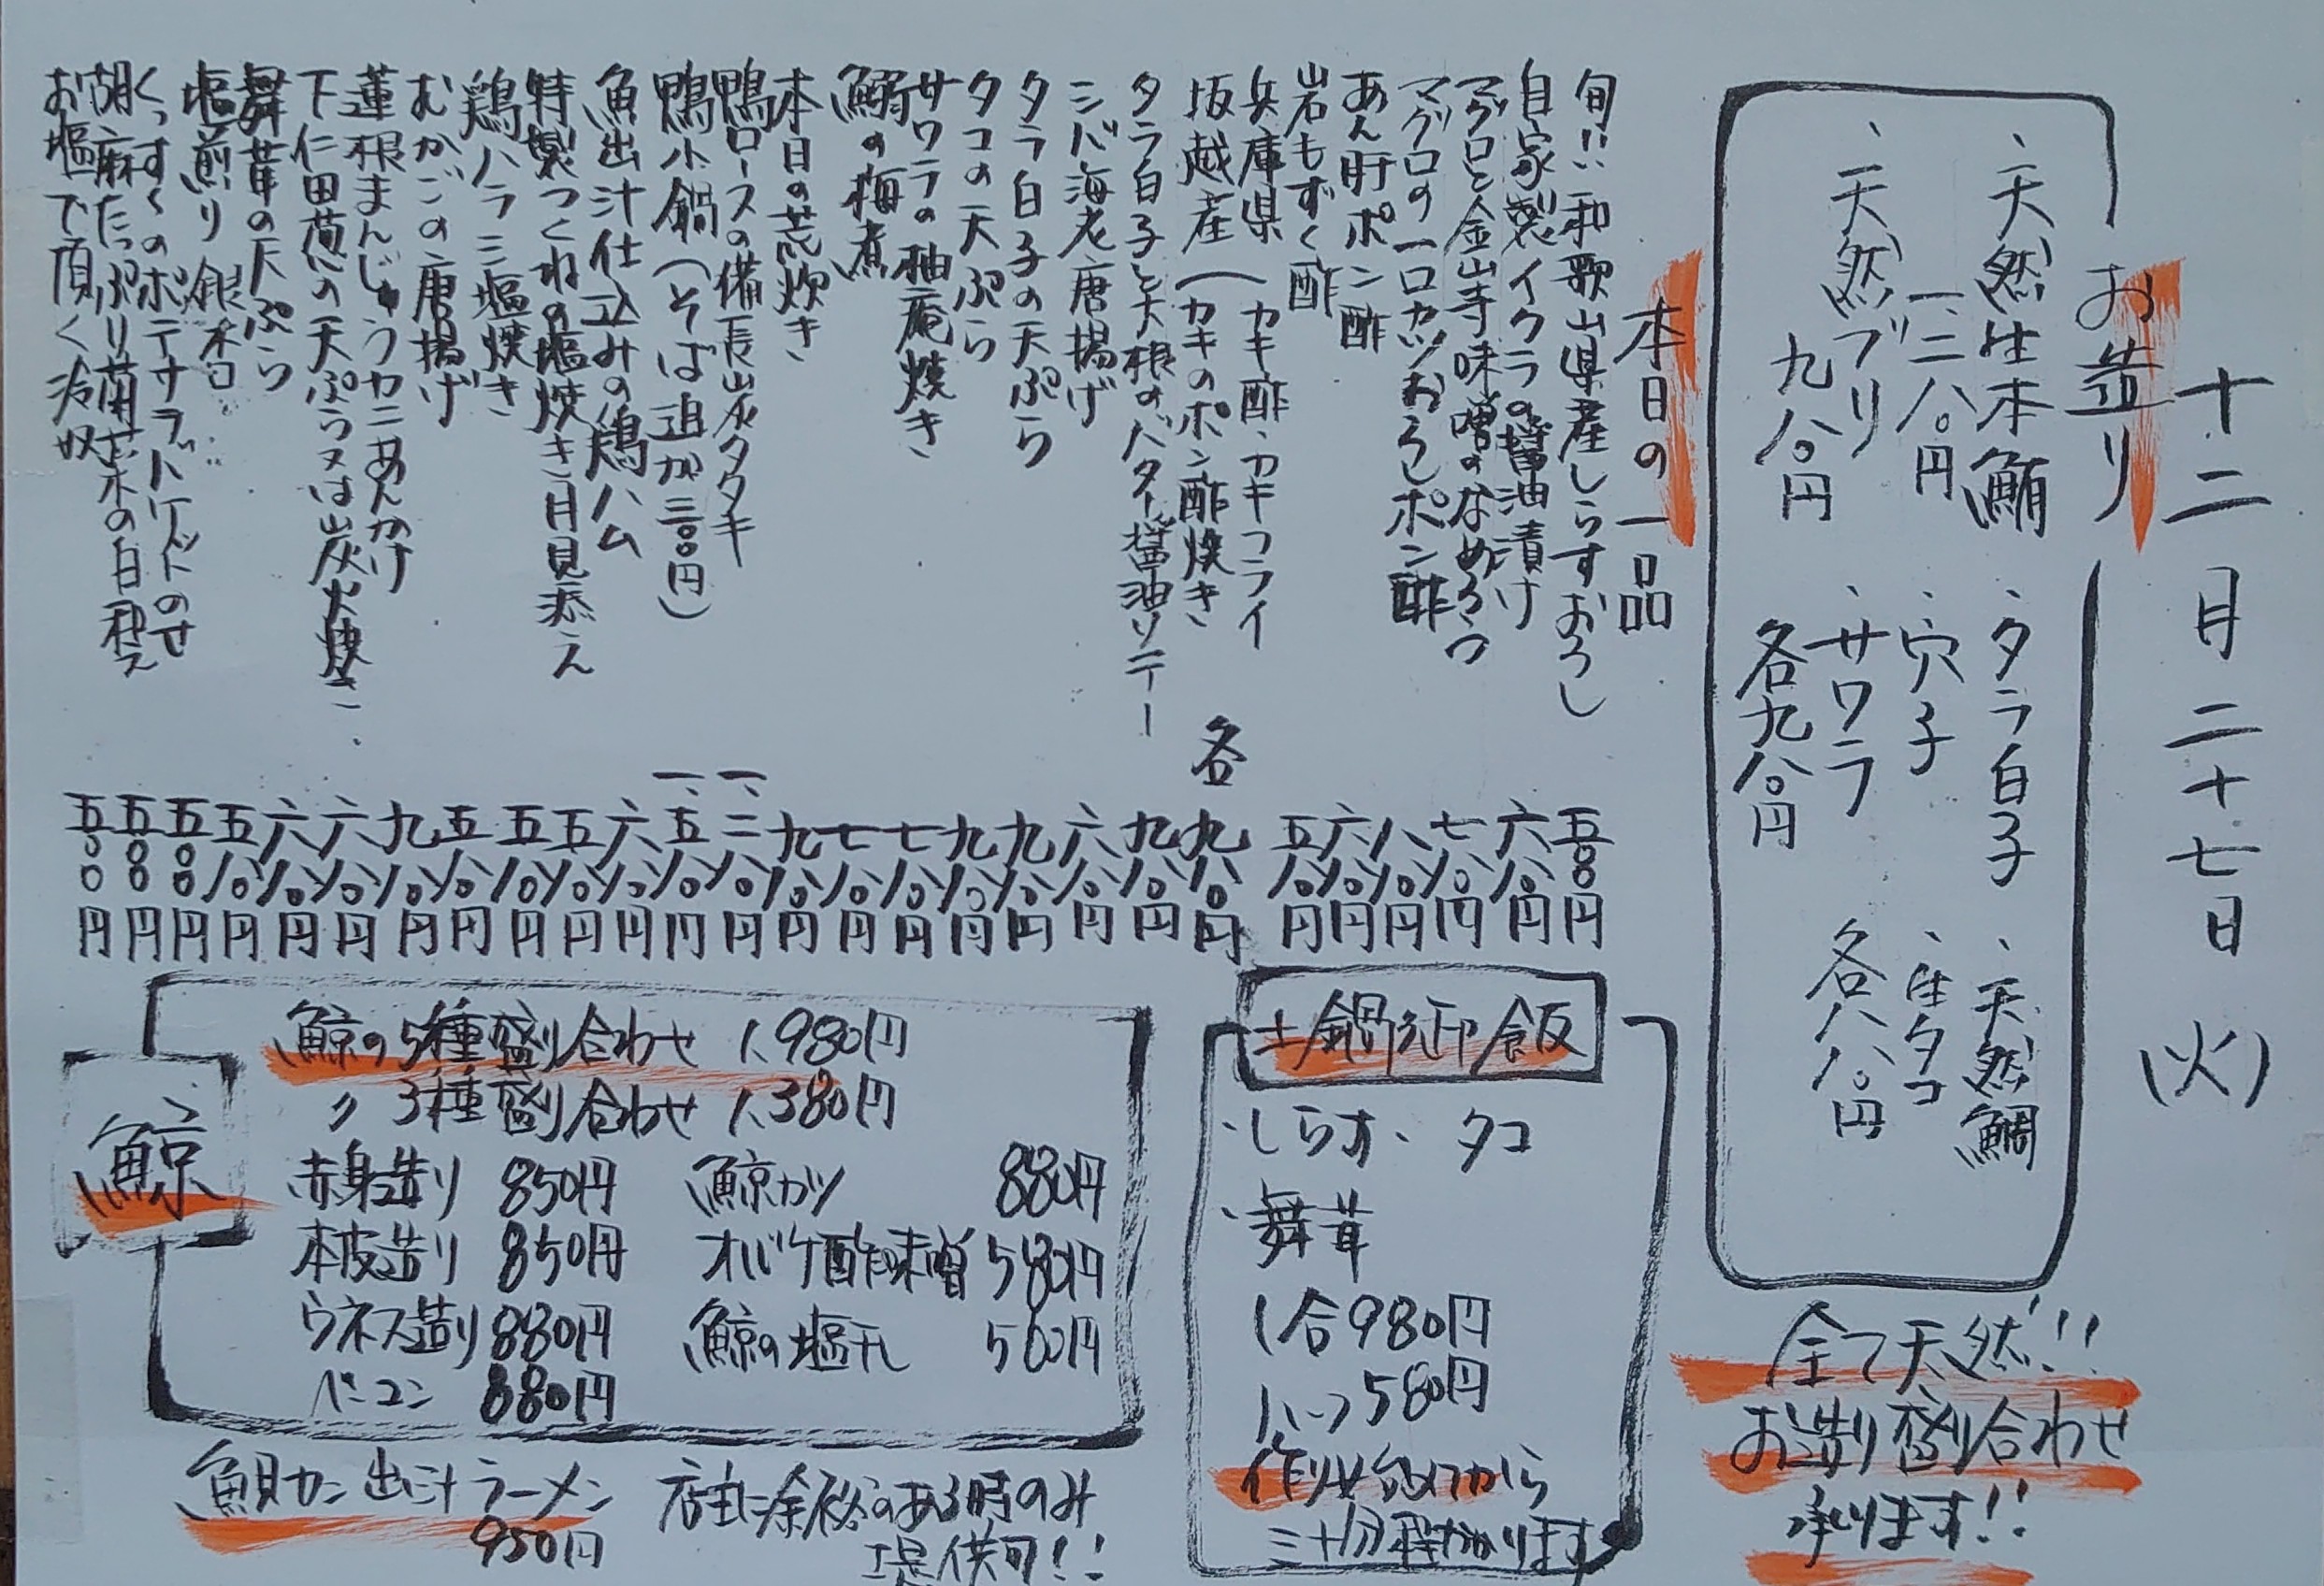 十二月二十七日(火)
お造り
・天然生本鮪
一、二八〇円
・天然ブリ
九八〇円
・タラ白子
・穴子
・サワラ
各九八〇円
・天然鯛
・生タコ
各八八〇円
全て天然!!
お造り盛り合わせ
承ります!!
本日の一品
旬!!和歌山県産しらすおろし 五〇〇円
自家製イクラの醤油漬け 六八〇円
マグロと金山寺味噌のなめろう 七八〇円
マグロの一口カツおろしポン酢 八八〇円
あん肝ポン酢 六八〇円
岩もずく酢 五八〇円
兵庫県
坂越産(カキ酢・カキフライ
カキのポン酢焼き 各九八〇円
タラ白子と大根のバター醤油ソテー 九八〇円
シバ海老唐揚げ 六八〇円
タラ白子の天ぷら 九八〇円
タコの天ぷら 九八〇円
サワラの柚庵焼き 七八〇円
鰯の梅煮 七八〇円
本日の荒炊き 九八〇円
鴨ロースの備長炭タタキ 一、二八〇円
鴨小鍋(そば追加三〇〇円) 一、五八〇円
魚出汁仕込みの鶏ハム 六八〇円
特製つくねの塩焼き月見添え 五八〇円
鶏ハラミ塩焼き 五八〇円
むかごの唐揚げ 五八〇円
蓮根まんじゅうカニあんかけ 九八〇円
下仁田葱の天ぷら又は炭火焼き 六八〇円
舞茸の天ぷら 六八〇円
塩煎り銀杏 五八〇円
くっすくのポテサラ
のせ 五〇〇円
胡麻たっぷり菊菜の白和え 五〇〇円
お塩で頂く冷奴 五〇〇円
土鍋御飯
・しらす・タコ
・舞茸
1合980円
ハーフ580円
作り始めてから
三十分程かかります
鯨
鯨の5種盛り合わせ 1,980円
〃 3種盛り合わせ 1,380円
赤身造り 850円
本皮造り 850円
ウネス造り 880円
ベーコン 880円
鯨カツ 880円
オバケ酢味噌 580円
鯨の塩干し 500円
魚貝カニ出汁ラーメン
950円
店主に余裕のある時のみ
提供可!!